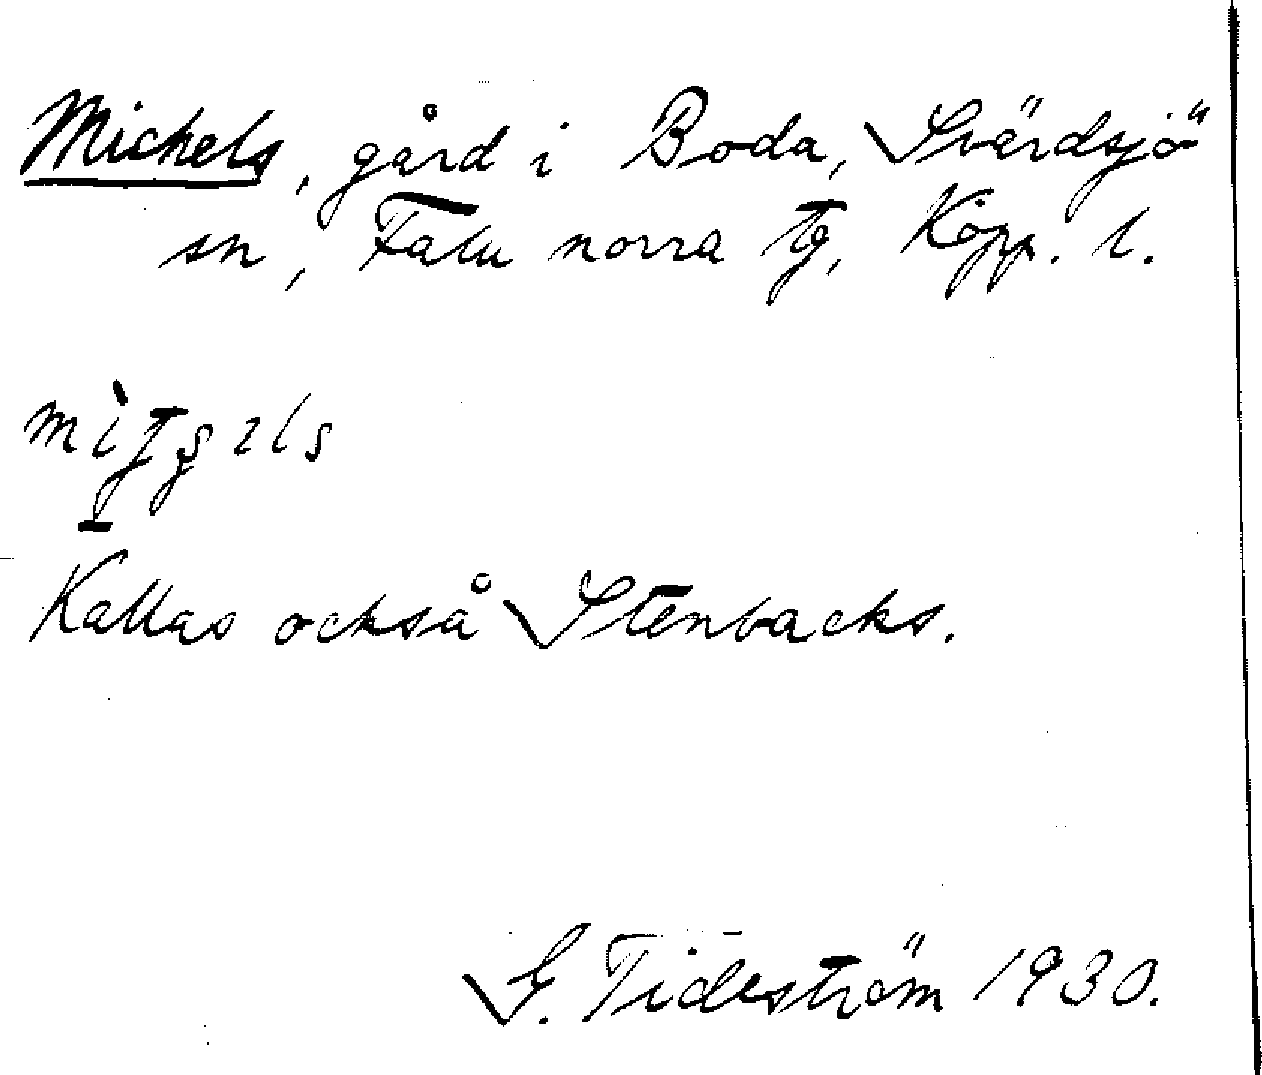 Michels, gård i Boda, Svärdsjö
sn, Falu norra tg, Kopp. l.
Kallas också Stenbacks.
G. Tideström 1930.